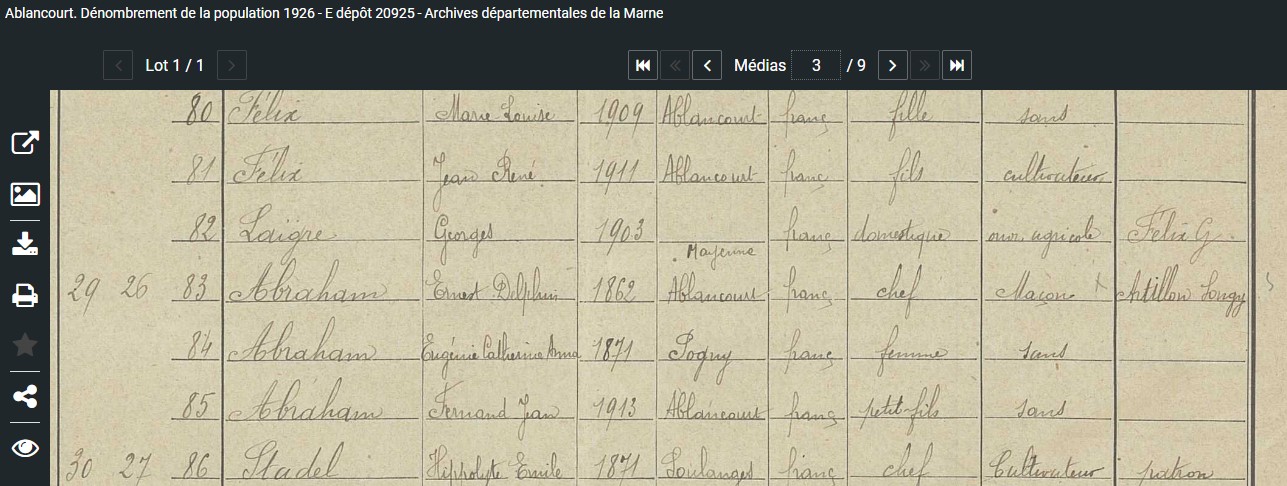 Ablancourt. Dénombrement de la population 1926 - E dépôt 20925 - Archives départementales de la Marne
Lot 1 / 1 Médias 3 / 9
80 Félix Marie-Louise 1909 Ablancourt franç fille sans
81 Félix Jean René 1911 Ablancourt franç fils cultivateur
82 Laigre Georges 1903 Mayenne franç domestique ouv. agricole Félix G.
29 26 83 Abraham Ernest Delphin 1862 Ablancourt franç chef Maçon
84 Abraham Eugénie Catherine Anna 1871 Pogny franç femme sans
85 Abraham Fernand Jean 1913 Ablancourt franç petit-fils sans
30 27 86 Stadel Hippolyte Emile 1871 Soulanges franç chef Cultivateur patron